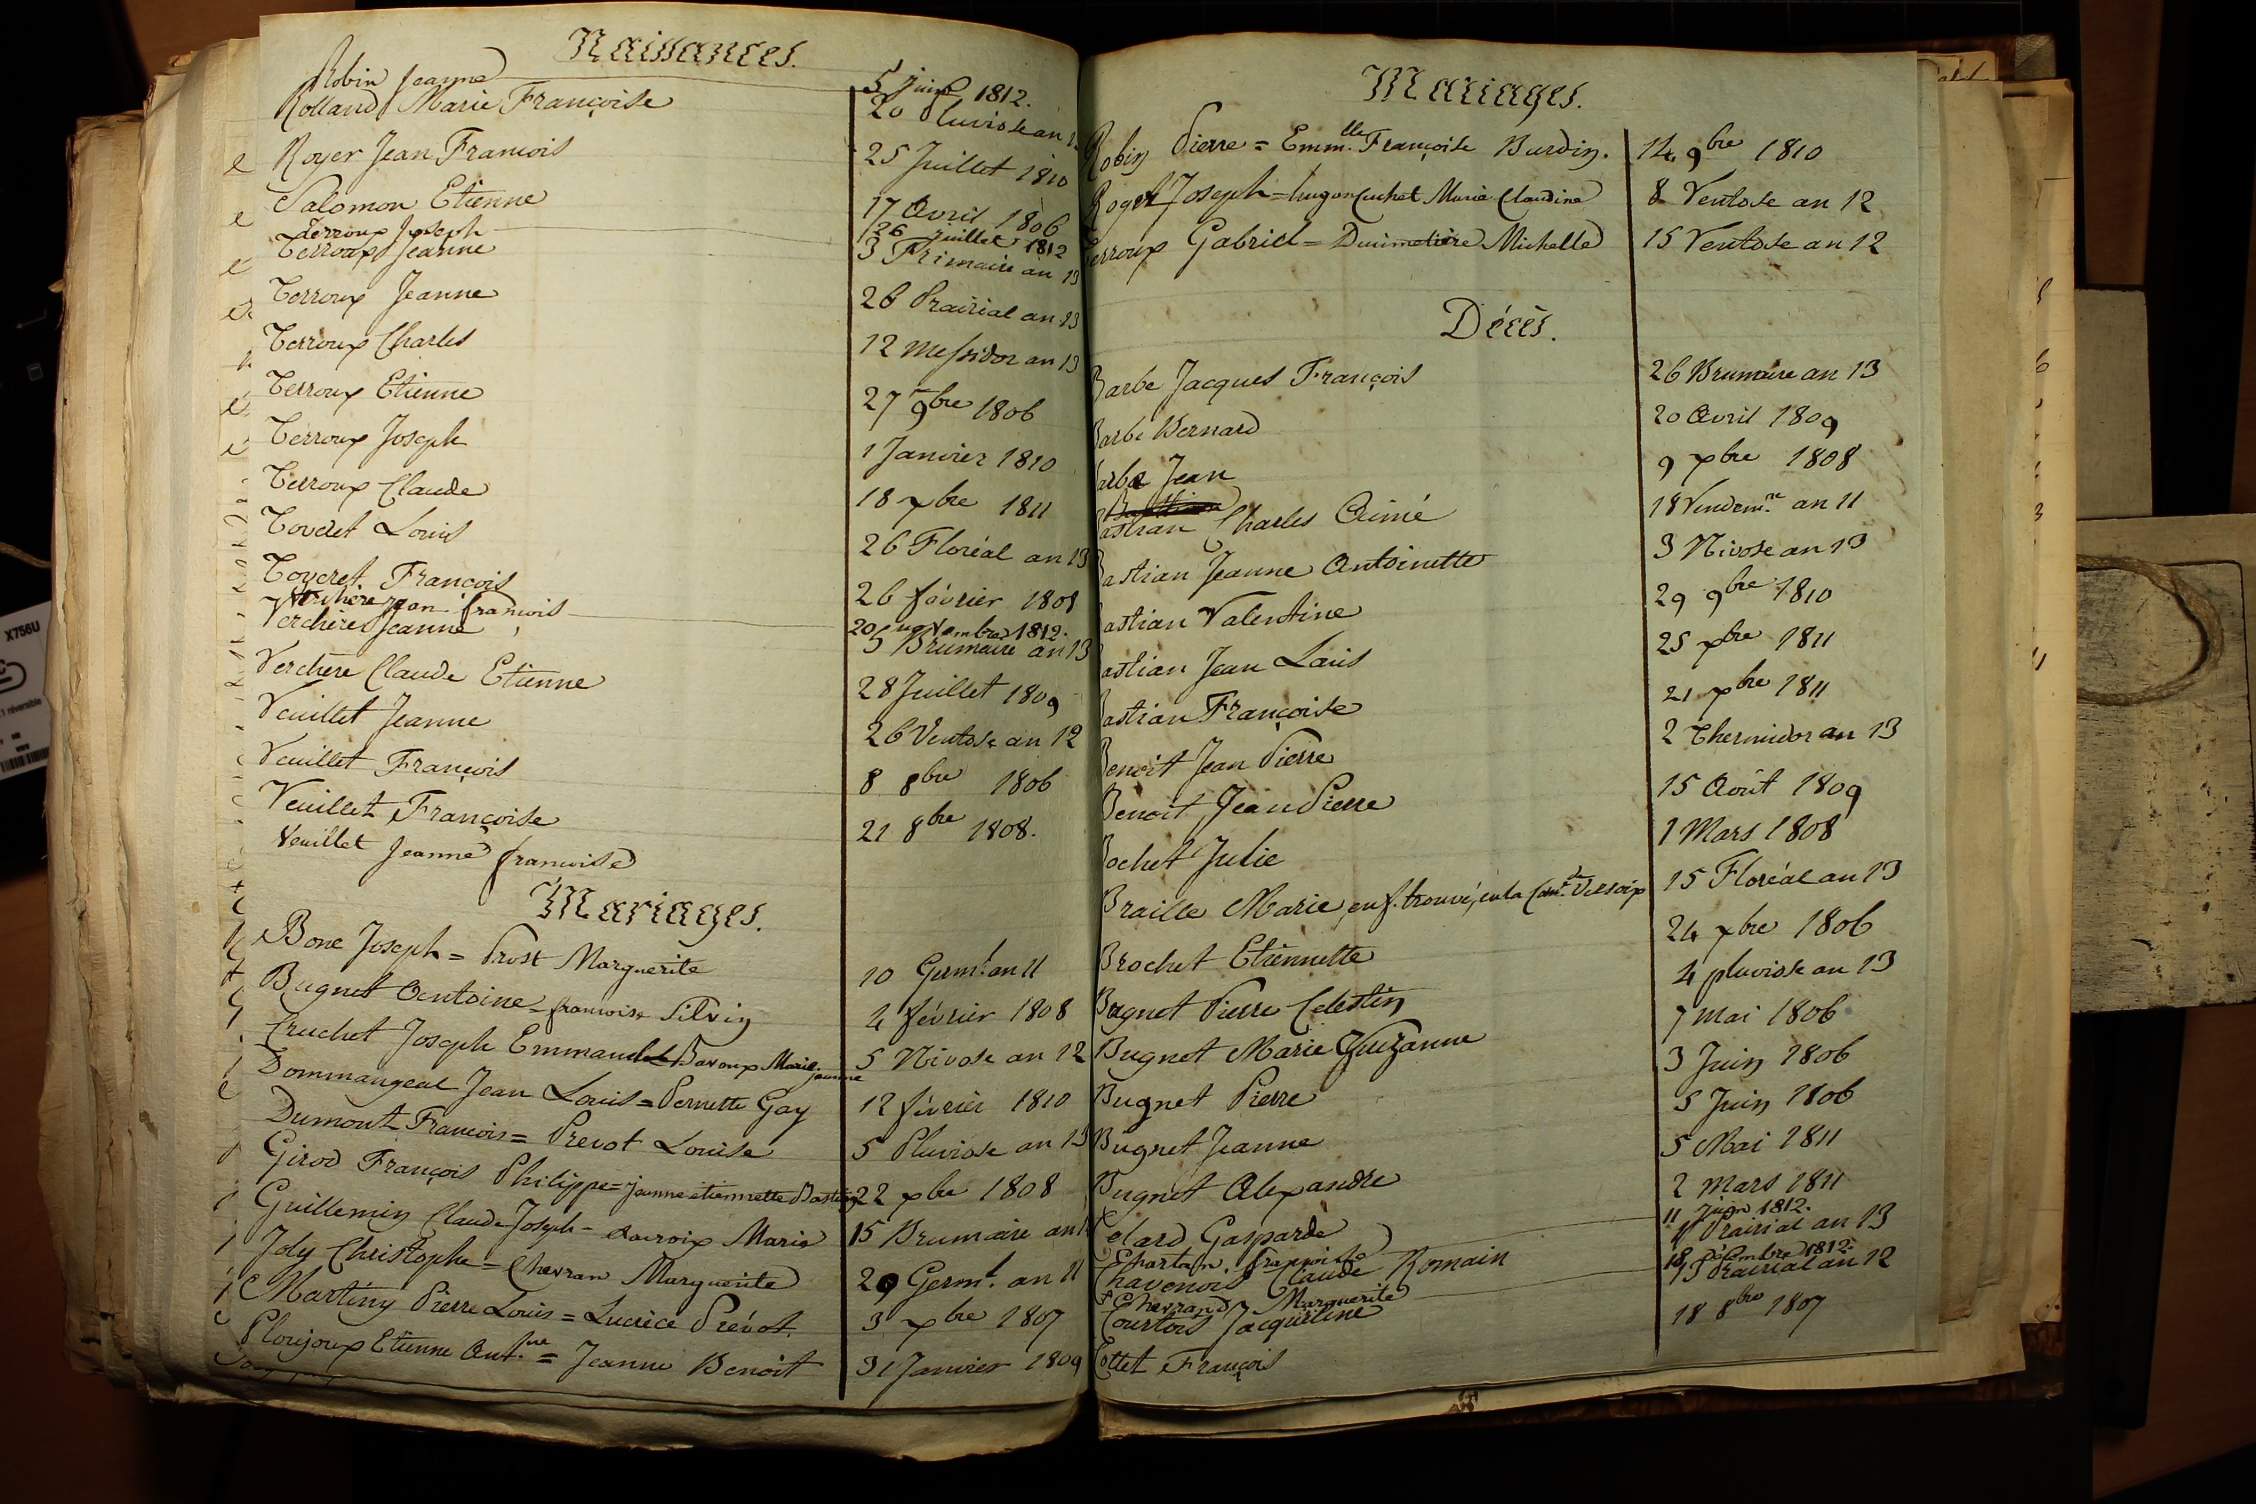 Naissances.
Robin Jeanne 5 juin 1812.
Rolland Marie Françoise 20 Pluviose an
Royer Jean François 25 Juillet 1810
Salomon Etienne 17 Avril 1806
Terroux Joseph 26 juillet 1812
Terroux Jeanne 3 Frimaire an 13
Terroux Jeanne 26 Prairial an 13
Terroux Charles 12 Messidor an 13
Terroux Etienne 27 9bre 1806
Terroux Joseph 1 Janvier 1810
Terroux Claude 18 xbre 1811
Louis 26 Floréal an 13
François 26 février 1808
Verchere Jean françois 20 novembre 1812.
Verchere Jeanne 5 Brumaire an 13
Verchere Claude Etienne 28 Juillet 1809
Veuillet Jeanne 26 Ventose an 12
Veuillet François 8 8bre 1806
Veuillet Françoise 21 8bre 1808.
Veuillet Jeanne françoise
Mariages.
Bone Joseph = Prost Marguerite 10 Germl. an 11
Bugnet Antoine = françoise Silvin 4 février 1808
Cruchet Joseph Emmanuel Davoux Marie jeanne 5 Nivose an 12
Dommangeat Jean Louis = Pernette Gay 12 février 1810
Dumont François = Prevot Louise 5 Pluviose an 13
Girod François Philippe = jeanne etiennette Bastian 22 xbre 1808
Guillemin Claude Joseph - Lacroix Marie 15 Brumaire an
Joly Christophe = Chevran Marguerite 29 Germl. an 11
Martiny Pierre Louis = Lucrèce Prévot. 3 xbre 1807
Ploujoux Etienne Antne = Jeanne Benoit 31 Janvier 1809
Mariages.
Robin Pierre = Emm.lle Françoise Burdin. 14 9bre 1810
Roget Joseph = hugon Cuchet Marie Claudine 8 Ventose an 12
Terroux Gabriel = Dumetière Michelle 15 Ventose an 12
Décès.
Barbe Jacques François 26 Brumaire an 13
Barbe Bernard 20 Avril 1809
Barbe Jean 9 xbre 1808
Bastian Charles Aimé 18 Vendemre an 11
Bastian Jeanne Antoinette 3 Nivose an 13
Bastian Valentine 29 9bre 1810
Bastian Jean Louis 25 xbre 1811
Bastian Françoise 21 xbre 1811
Benoit Jean Pierre 2 Thermidor an 13
Benoit Jean Pierre 15 Août 1809
Bochet Julie 1 Mars 1808
Braille Marie, enf. trouvé, en la Comne de Versoix 15 Floréal an 13
Brochet Etiennette 24 xbre 1806
Bugnet Pierre Celestin 4 pluviose an 13
Bugnet Marie Suzanne 7 Mai 1806
Bugnet Pierre 3 Juin 1806
Bugnet Jeanne 5 Juin 1806
Bugnet Alexandre 5 Mai 1811
Celard Gasparde 2 Mars 1811
Chartan françoise 11 juin 1812.
Chavenois Claude Romain Prairial an 13
Chevrand Marguerite 18 décembre 1812.
Courtois Jacqueline 13 Prairial an 12
Cottet François 18 8bre 1807